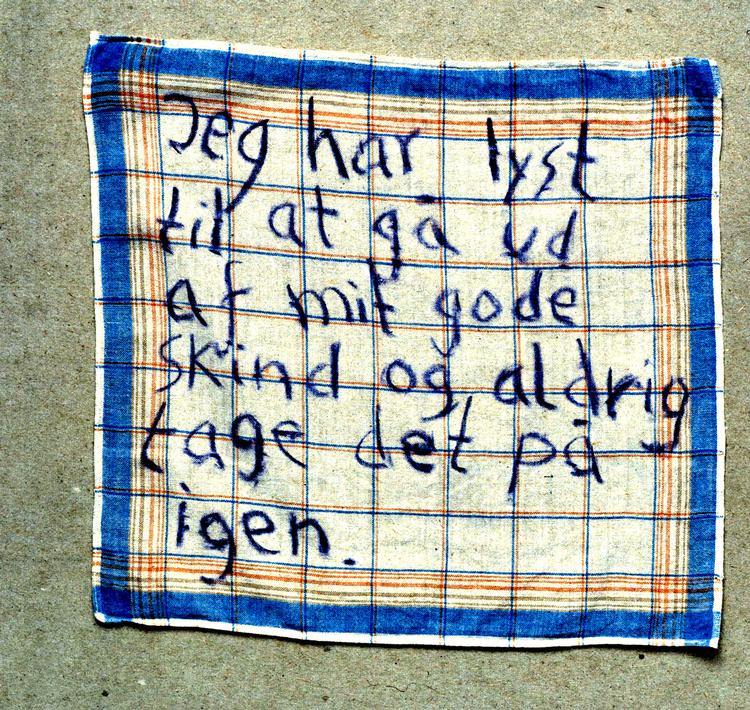 Jeg har lyst
til at gå ud
af mit gode
skind og aldrig
tage det på
igen.